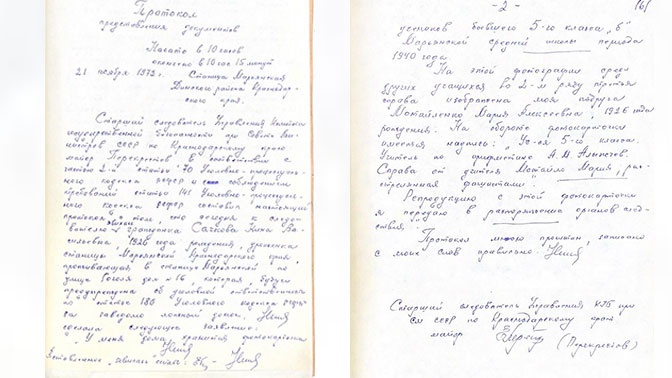 Протокол
представления документов
Начато в 10 часов
окончено в 10 час 15 минут
21 ноября 1972 г. Станица Марьянская
Динского района Краснодар-
ского края.
Старший следователь Управления Комитета
государственной безопасности при Совете Ми-
нистров СССР по Краснодарскому краю
майор Перекрестов, в соответствии с
частью 2-й статьи 70 Уголовно-процессуаль-
ного кодекса РСФСР и с соблюдением
требований статьи 141 Уголовно-процессуаль-
ного кодекса РСФСР составил настоящий
протокол в том, что сего дня к следо-
вателю гражданка
силовна, 1926 года рождения, уроженка
станицы Марьянской Краснодарского края,
проживающая в станице Марьянской по
улице дом № 16, которая, будучи
предупреждена об уголовной ответственности
по статье 180 Уголовного кодекса РСФСР
за заведомо ложный донос.
сделала следующее заявление:
У меня дома хранится фотокарточка
- 2 -
учеников бывшего 5-го класса "б"
Марьянской средней школы периода
1940 года.
На этой фотографии сре-
ди других учащихся во 2-м ряду третья
справа изображена моя подруга
Мотайленко Мария Алексеевна, 1926 года
рождения. На обороте фотокарточки
имеется надпись: 5 класса.
Учитель по арифметике А.М.
Справа от учителя Мотайло Мария, рас-
стрелянная фашистами.
Репродукцию с этой фотокарточки
я передаю в распоряжение органов след-
ствия.
Протокол мною прочитан, записано
с моих слов правильно.
Старший следователь Управления КГБ при
СМ СССР по Краснодарскому краю
майор (Перекрестов)